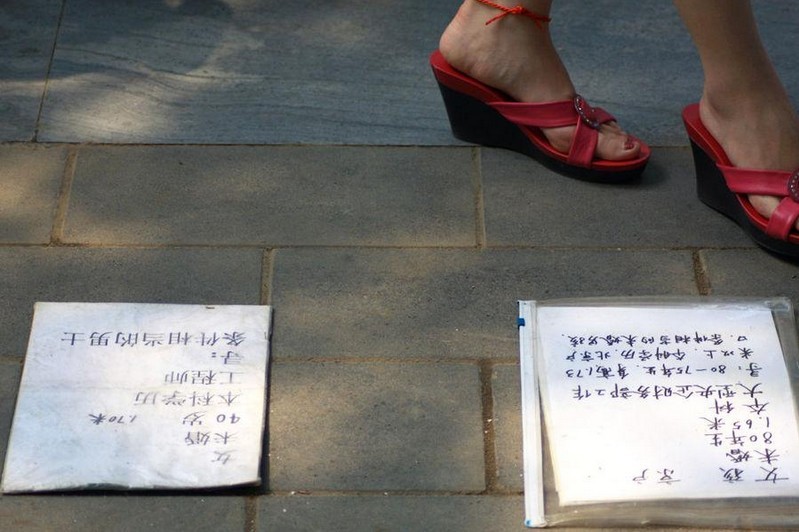 女
未婚
40岁 1.70米
本科学历
工程师
寻:
条件相当的男士
女孩 京户
未婚
80年生
1.65米
本科
大型央企财务部工作
寻:80—75年生.身高1.73
米以上.本科学历.北京户
口.条件相当的未婚男孩.